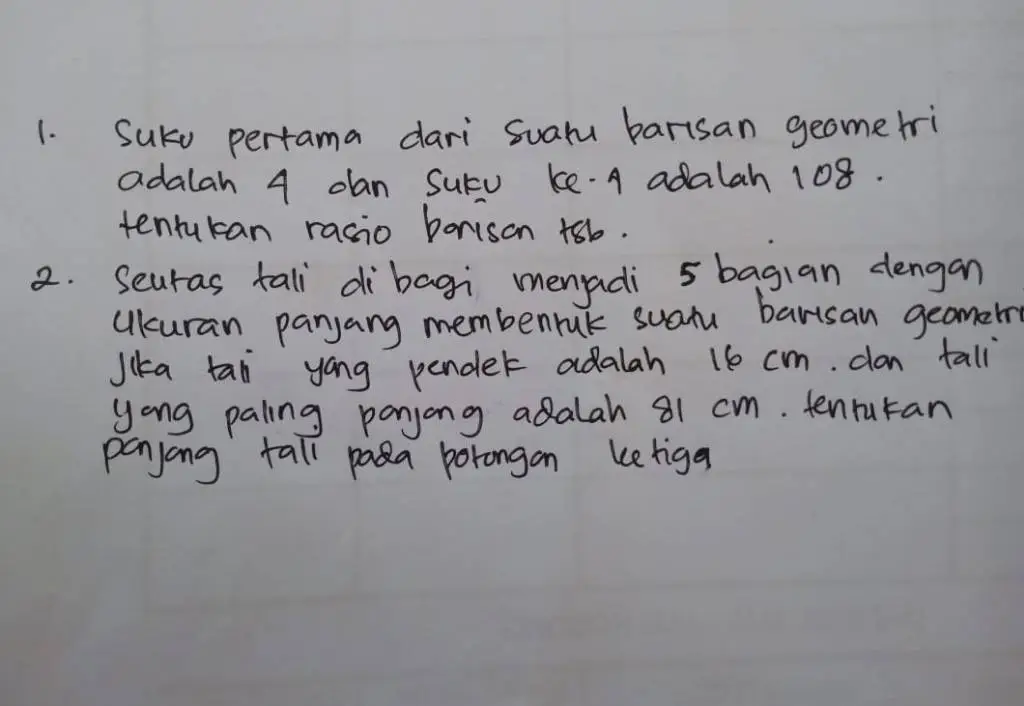 1. Suku pertama dari suatu barisan geometri
adalah 4 dan suku ke-4 adalah 108.
tentukan rasio barisan tsb.
2. Seutas tali di bagi menjadi 5 bagian dengan
Ukuran panjang membentuk suatu barisan geometri
Jika tali yang pendek adalah 16 cm. dan tali
yang paling panjang adalah 81 cm. tentukan
panjang tali pada potongan ketiga